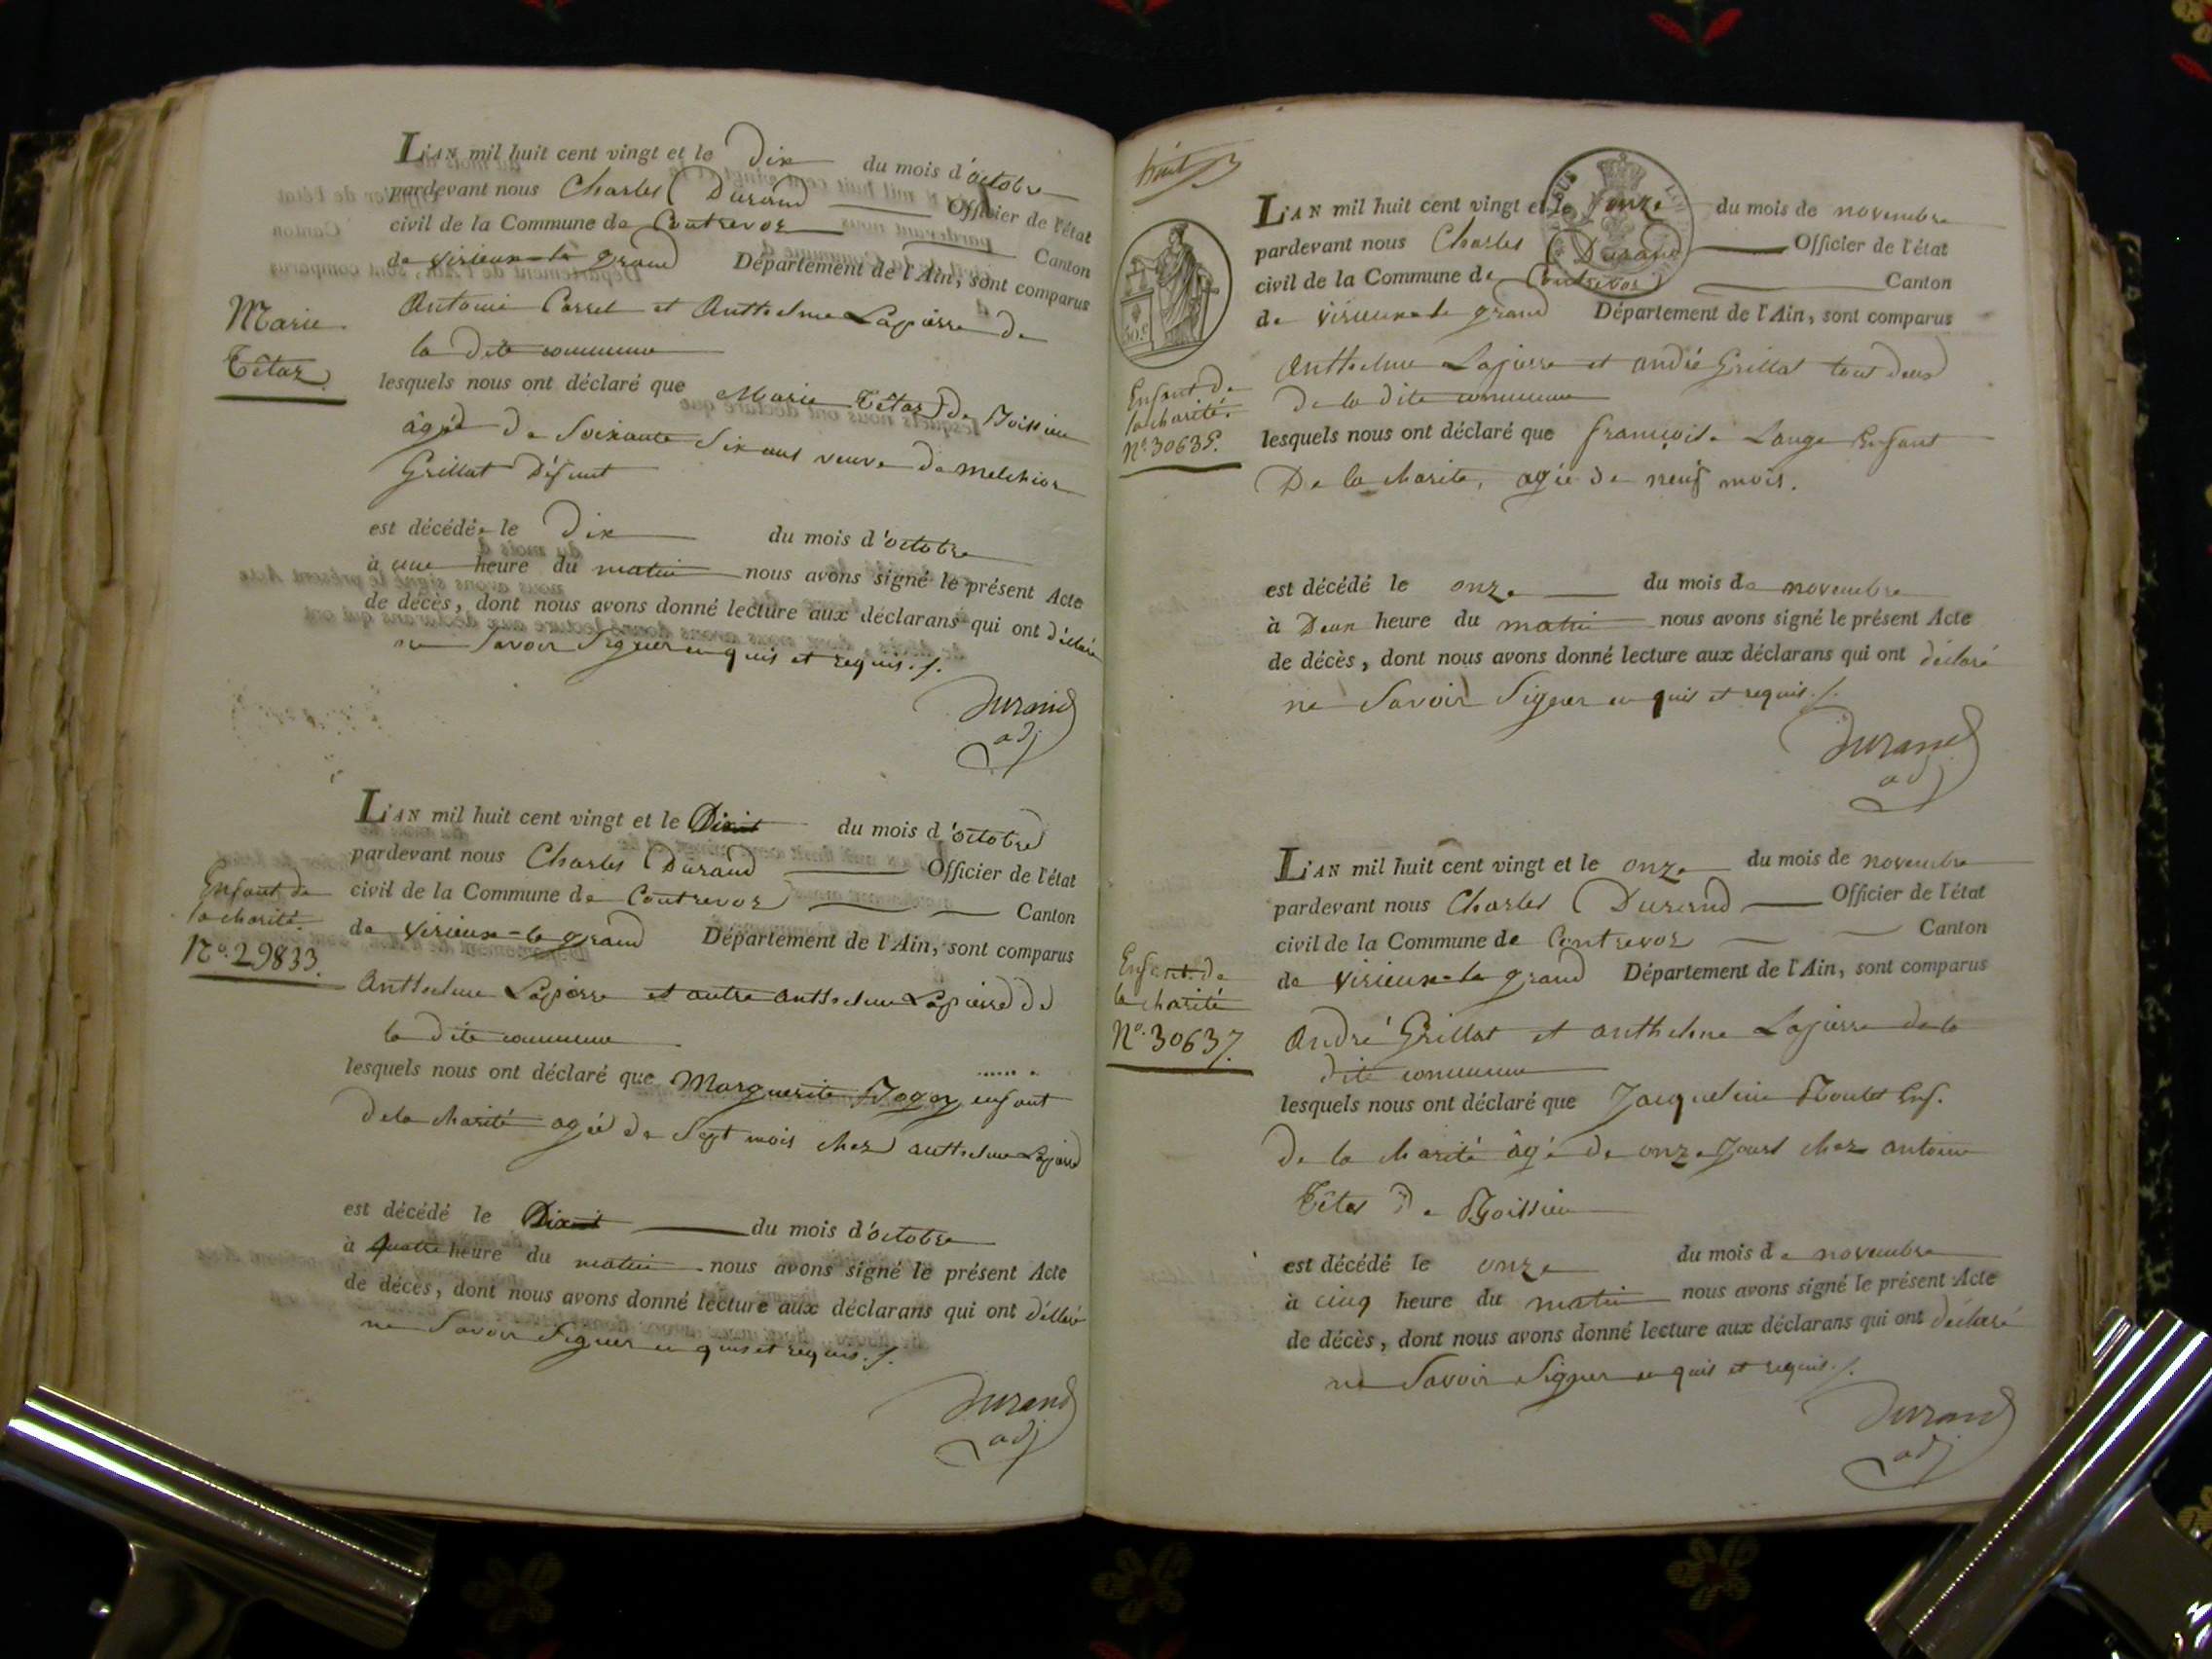 L'AN mil huit cent vingt et le Dix du mois d'octobre
pardevant nous Charles Durand Officier de l'état
civil de la Commune de Contrevoz Canton
de Virieux-le grand Département de l'Ain, sont comparus
Antoine Carrel et Anthelme Lapierre de
la Dite commune
Marie
Têtaz
lesquels nous ont déclaré que Marie Têtaz de
âgée De Soixante Six ans veuve de Melchior
Grillat Défunt
est décédée le Dix du mois d'octobre
à une heure du matin nous avons signé le présent Acte
de décès, dont nous avons donné lecture aux déclarans qui ont déclaré
ne Savoir Signer enquis et requis ./.
Durand
adj
L'AN mil huit cent vingt et le du mois d'octobre
pardevant nous Charles Durand Officier de l'état
civil de la Commune de Contrevoz Canton
de Virieux-le grand Département de l'Ain, sont comparus
Enfant de
la charité.
N.° 29833.
Anthelme Lapierre et autre Anthelme Lapierre De
la Dite commune
lesquels nous ont déclaré que Marguerite enfant
De la charité agée De Sept mois chez anthelme Lapierre
est décédé le du mois d'octobre
à quatre heure du matin nous avons signé le présent Acte
de décès, dont nous avons donné lecture aux déclarans qui ont déclaré
ne Savoir Signer enquis et requis ./.
Durand
adj
huit
L'AN mil huit cent vingt et le onze du mois de novembre
pardevant nous Charles Durand Officier de l'état
civil de la Commune de Contrevoz Canton
de Virieux-le grand Département de l'Ain, sont comparus
50 c
Anthelme Lapierre et andré Grillat tout deux
De la Dite commune
Enfant de
la charité.
N.° 30635.
lesquels nous ont déclaré que françoise Lange Enfant
De la charité, agée De neuf mois.
est décédé le onze du mois de novembre
à Deux heure du matin nous avons signé le présent Acte
de décès, dont nous avons donné lecture aux déclarans qui ont déclaré
ne Savoir Signer enquis et requis ./.
Durand
adj
L'AN mil huit cent vingt et le onze du mois de novembre
pardevant nous Charles Durand Officier de l'état
civil de la Commune de Contrevoz Canton
de Virieux-le grand Département de l'Ain, sont comparus
Enfant de
la charité
N.° 30637.
André Grillat et anthelme Lapierre de la
Dite commune
lesquels nous ont déclaré que Jacqueline Enf.
De la charité âgé De onze Jours chez antoine
Têtaz De
est décédé le onze du mois de novembre
à cinq heure du matin nous avons signé le présent Acte
de décès, dont nous avons donné lecture aux déclarans qui ont déclaré
ne Savoir Signer enquis et requis ./.
Durand
adj